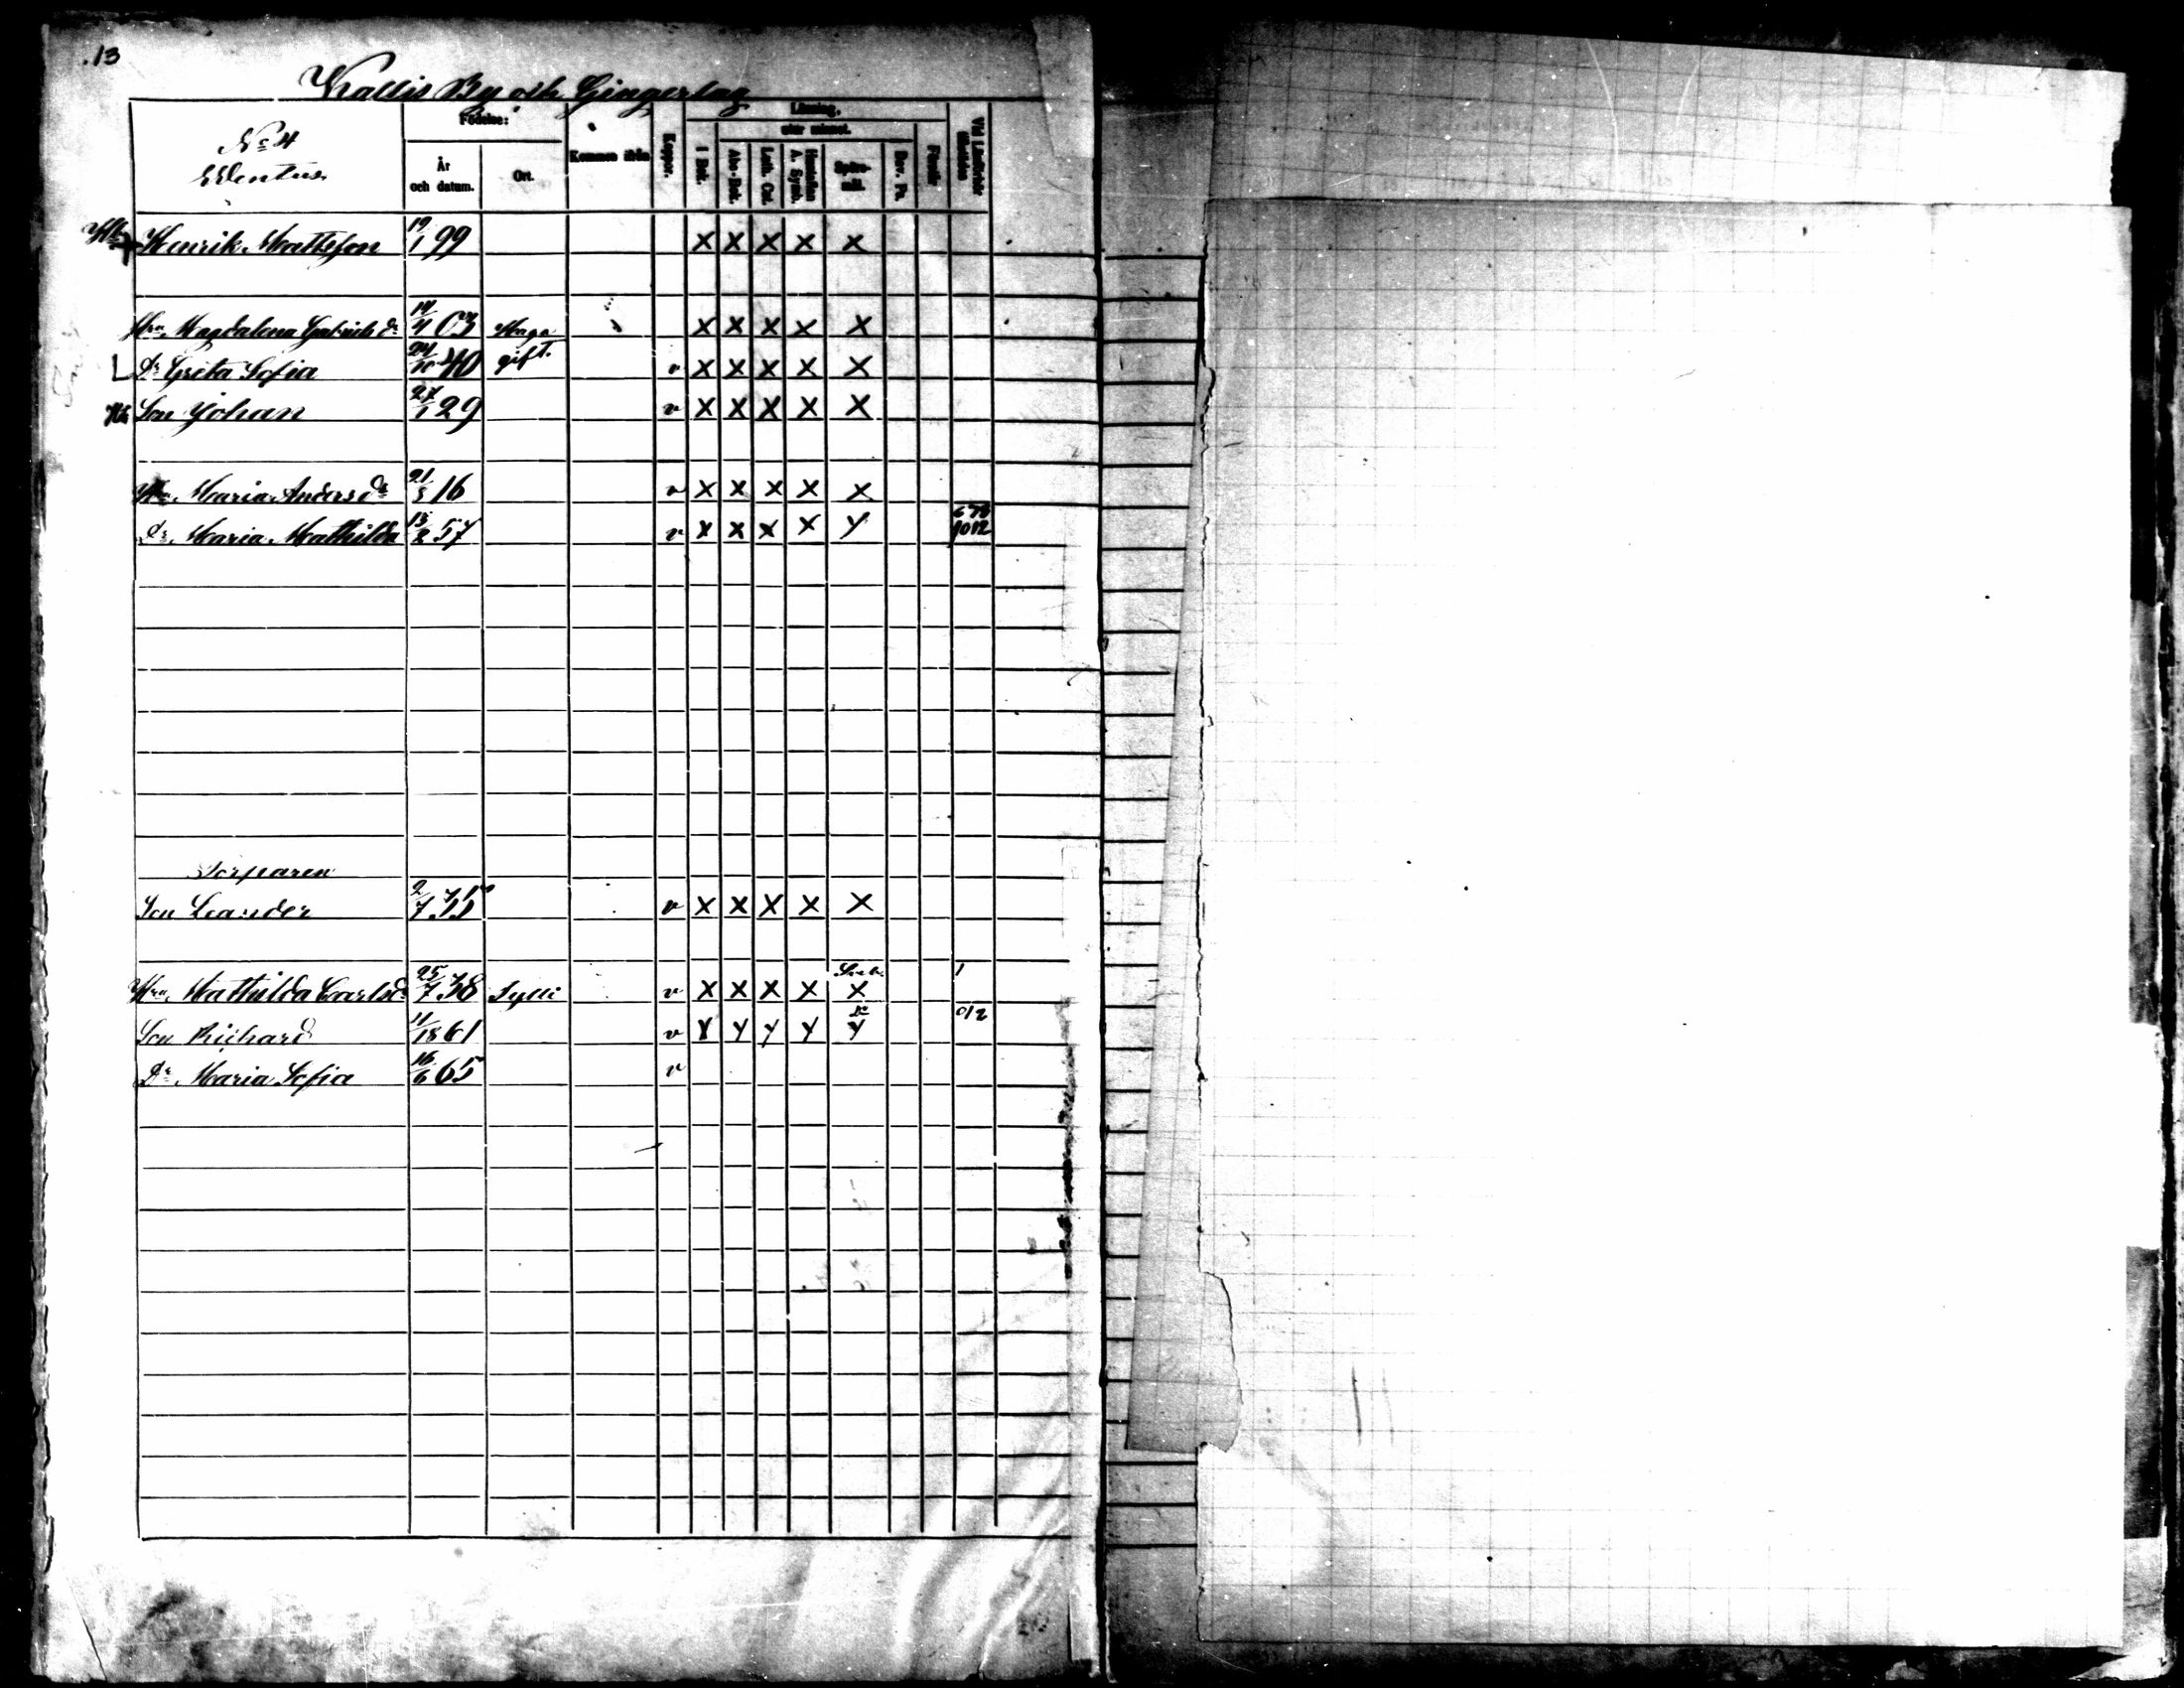 13
Kallis By och Gingerlag
No 4
Födelse:
År och datum.
Ort.
Kommen ifrån
Koppor.
Läsning,
utur minnet.
I Bok.
Abc-Bok.
Luth. Cat.
Hustaflan A. Symb.
Spörsmål.
Dav. Ps.
Förstår
Henrik Mattsson 19/1 99 X X X X X
Hu. Magdalena Gabrielsdr 14/4 03 Haga X X X X X
Dr Greta Sofia 24/10 40 gift. v X X X X X
Son Johan 27/1 29 v X X X X X
Hu. Maria Andersdr 21/5 16 v X X X X X
Dr Maria Mathilda 15/2 57 v X X X X Y
Torparen
Son Leander 2/7 35 v X X X X X
Hu. Mathilda Carlsdr 25/7 38 v X X X X X
Son Richard 11/18 61 v Y Y Y Y Y 012
Dr Maria Sofia 16/6 65 v